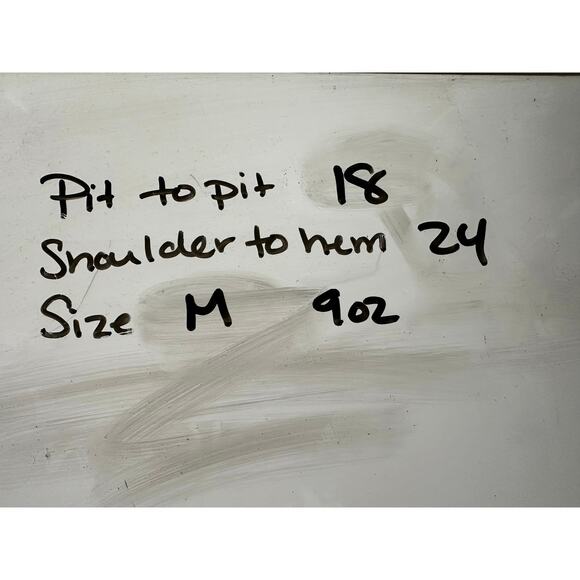 Pit to pit 18
Shoulder to hem 24
Size M 9oz